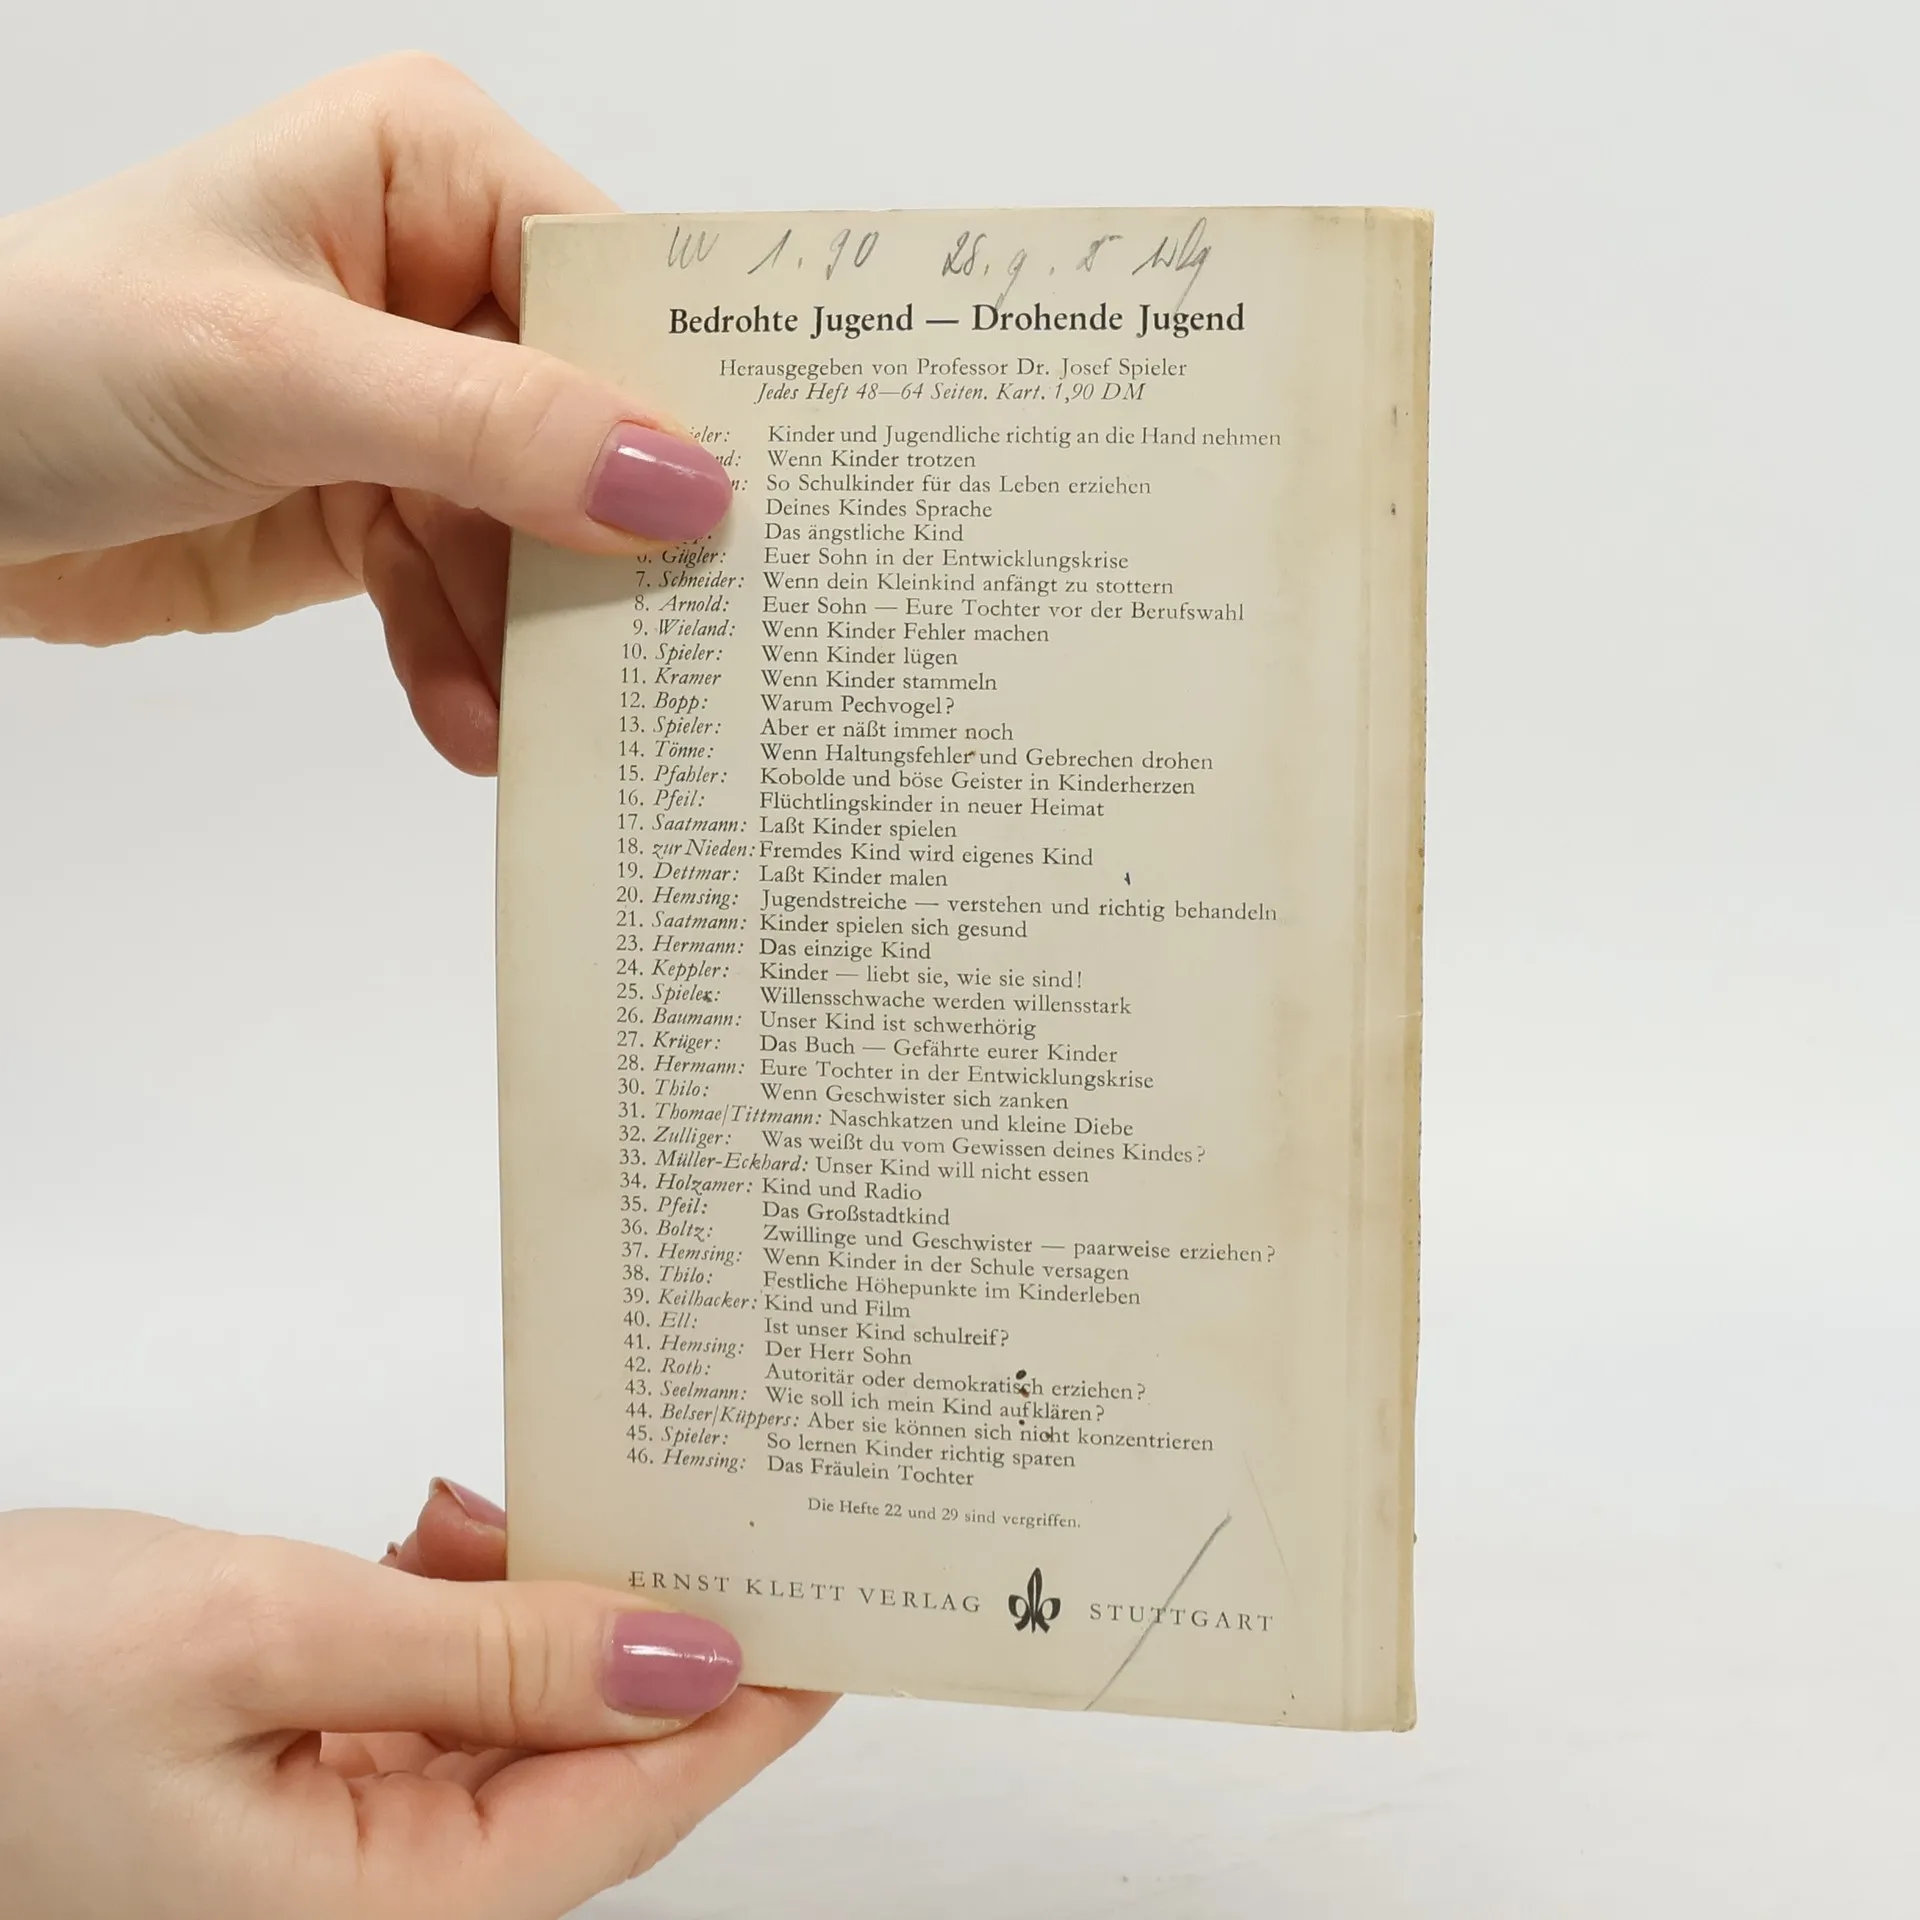 1.90 28. 9.
Bedrohte Jugend — Drohende Jugend
Herausgegeben von Professor Dr. Josef Spieler
Jedes Heft 48—64 Seiten. Kart. 1,90 DM
Kinder und Jugendliche richtig an die Hand nehmen
Wenn Kinder trotzen
So Schulkinder für das Leben erziehen
Deines Kindes Sprache
Das ängstliche Kind
Gügler: Euer Sohn in der Entwicklungskrise
7. Schneider: Wenn dein Kleinkind anfängt zu stottern
8. Arnold: Euer Sohn — Eure Tochter vor der Berufswahl
9. Wieland: Wenn Kinder Fehler machen
10. Spieler: Wenn Kinder lügen
11. Kramer Wenn Kinder stammeln
12. Bopp: Warum Pechvogel?
13. Spieler: Aber er näßt immer noch
14. Tönne: Wenn Haltungsfehler und Gebrechen drohen
15. Pfahler: Kobolde und böse Geister in Kinderherzen
16. Pfeil: Flüchtlingskinder in neuer Heimat
17. Saatmann: Laßt Kinder spielen
18. zur Nieden: Fremdes Kind wird eigenes Kind
19. Dettmar: Laßt Kinder malen
20. Hemsing: Jugendstreiche — verstehen und richtig behandeln
21. Saatmann: Kinder spielen sich gesund
23. Hermann: Das einzige Kind
24. Keppler: Kinder — liebt sie, wie sie sind!
25. Spieler: Willensschwache werden willensstark
26. Baumann: Unser Kind ist schwerhörig
27. Krüger: Das Buch — Gefährte eurer Kinder
28. Hermann: Eure Tochter in der Entwicklungskrise
30. Thilo: Wenn Geschwister sich zanken
31. Thomae/Tittmann: Naschkatzen und kleine Diebe
32. Zulliger: Was weißt du vom Gewissen deines Kindes?
33. Müller-Eckhard: Unser Kind will nicht essen
34. Holzamer: Kind und Radio
35. Pfeil: Das Großstadtkind
36. Boltz: Zwillinge und Geschwister — paarweise erziehen?
37. Hemsing: Wenn Kinder in der Schule versagen
38. Thilo: Festliche Höhepunkte im Kinderleben
39. Keilhacker: Kind und Film
40. Ell: Ist unser Kind schulreif?
41. Hemsing: Der Herr Sohn
42. Roth: Autoritär oder demokratisch erziehen?
43. Seelmann: Wie soll ich mein Kind aufklären?
44. Belser/Küppers: Aber sie können sich nicht konzentrieren
45. Spieler: So lernen Kinder richtig sparen
46. Hemsing: Das Fräulein Tochter
Die Hefte 22 und 29 sind vergriffen.
ERNST KLETT VERLAG STUTTGART